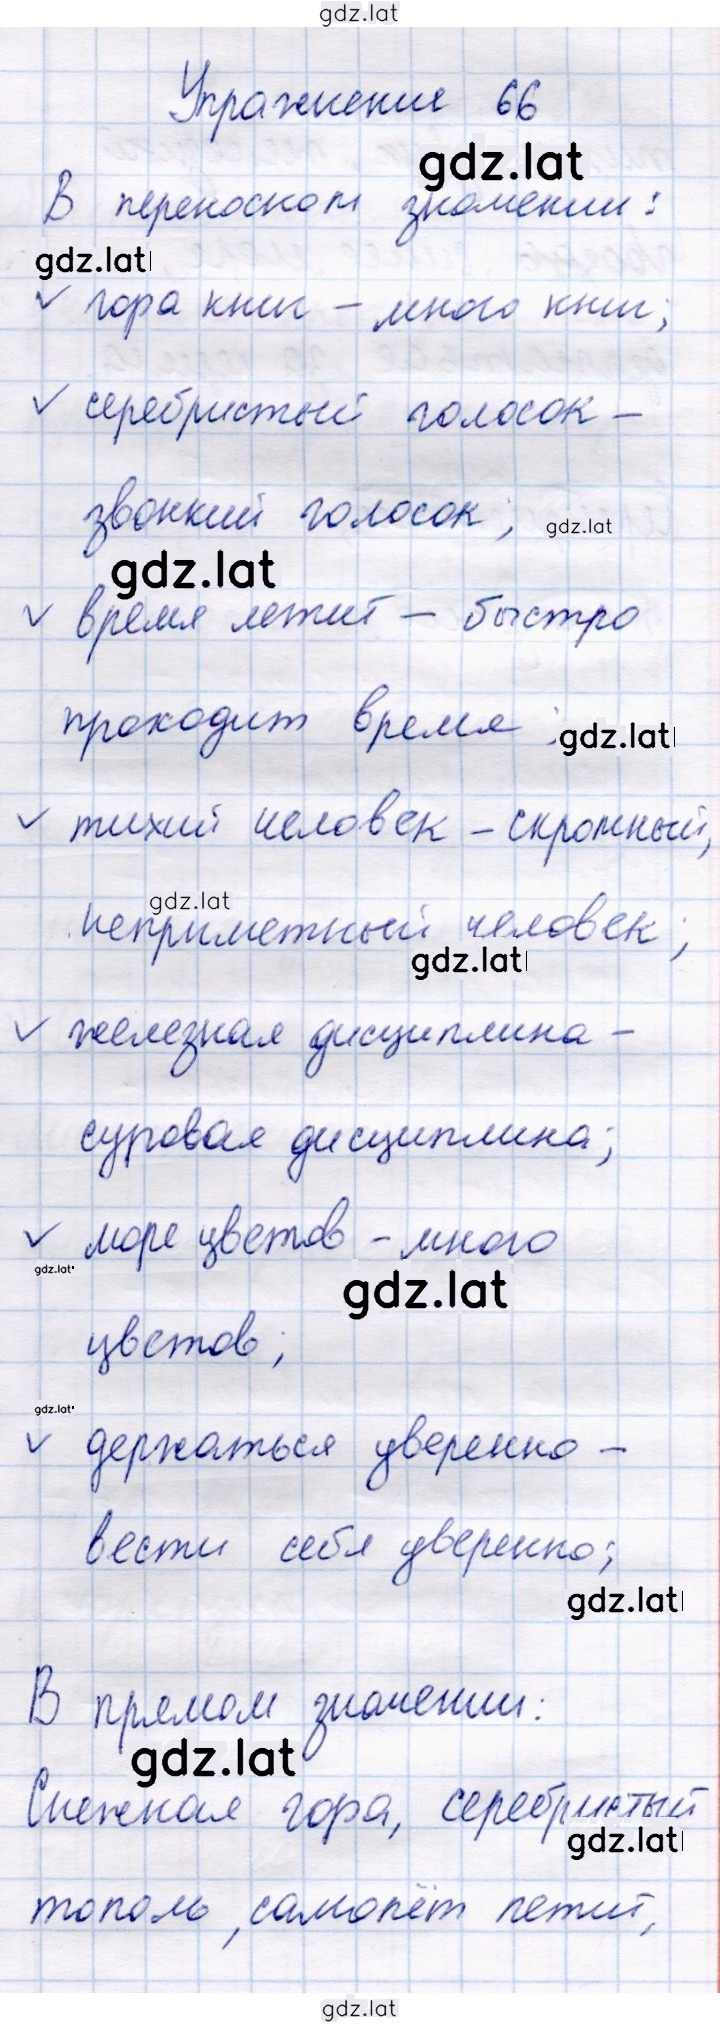 gdz.lat
Упражнение 66
gdz.lat
В переносном значении:
gdz.lat
✓ гора книг – много книг;
✓ серебристый голосок –
звонкий голосок;
gdz.lat
gdz.lat
✓ время летит – быстро
проходит время;
gdz.lat
✓ тихий человек – скромный,
gdz.lat
неприметный человек;
gdz.lat
✓ железная дисциплина –
суровая дисциплина;
✓ море цветов – много
gdz.lat
gdz.lat
цветов;
gdz.lat
✓ держаться уверенно –
вести себя уверенно;
gdz.lat
В прямом значении:
gdz.lat
Снежная гора, серебристый
gdz.lat
тополь, самолёт летит,
gdz.lat